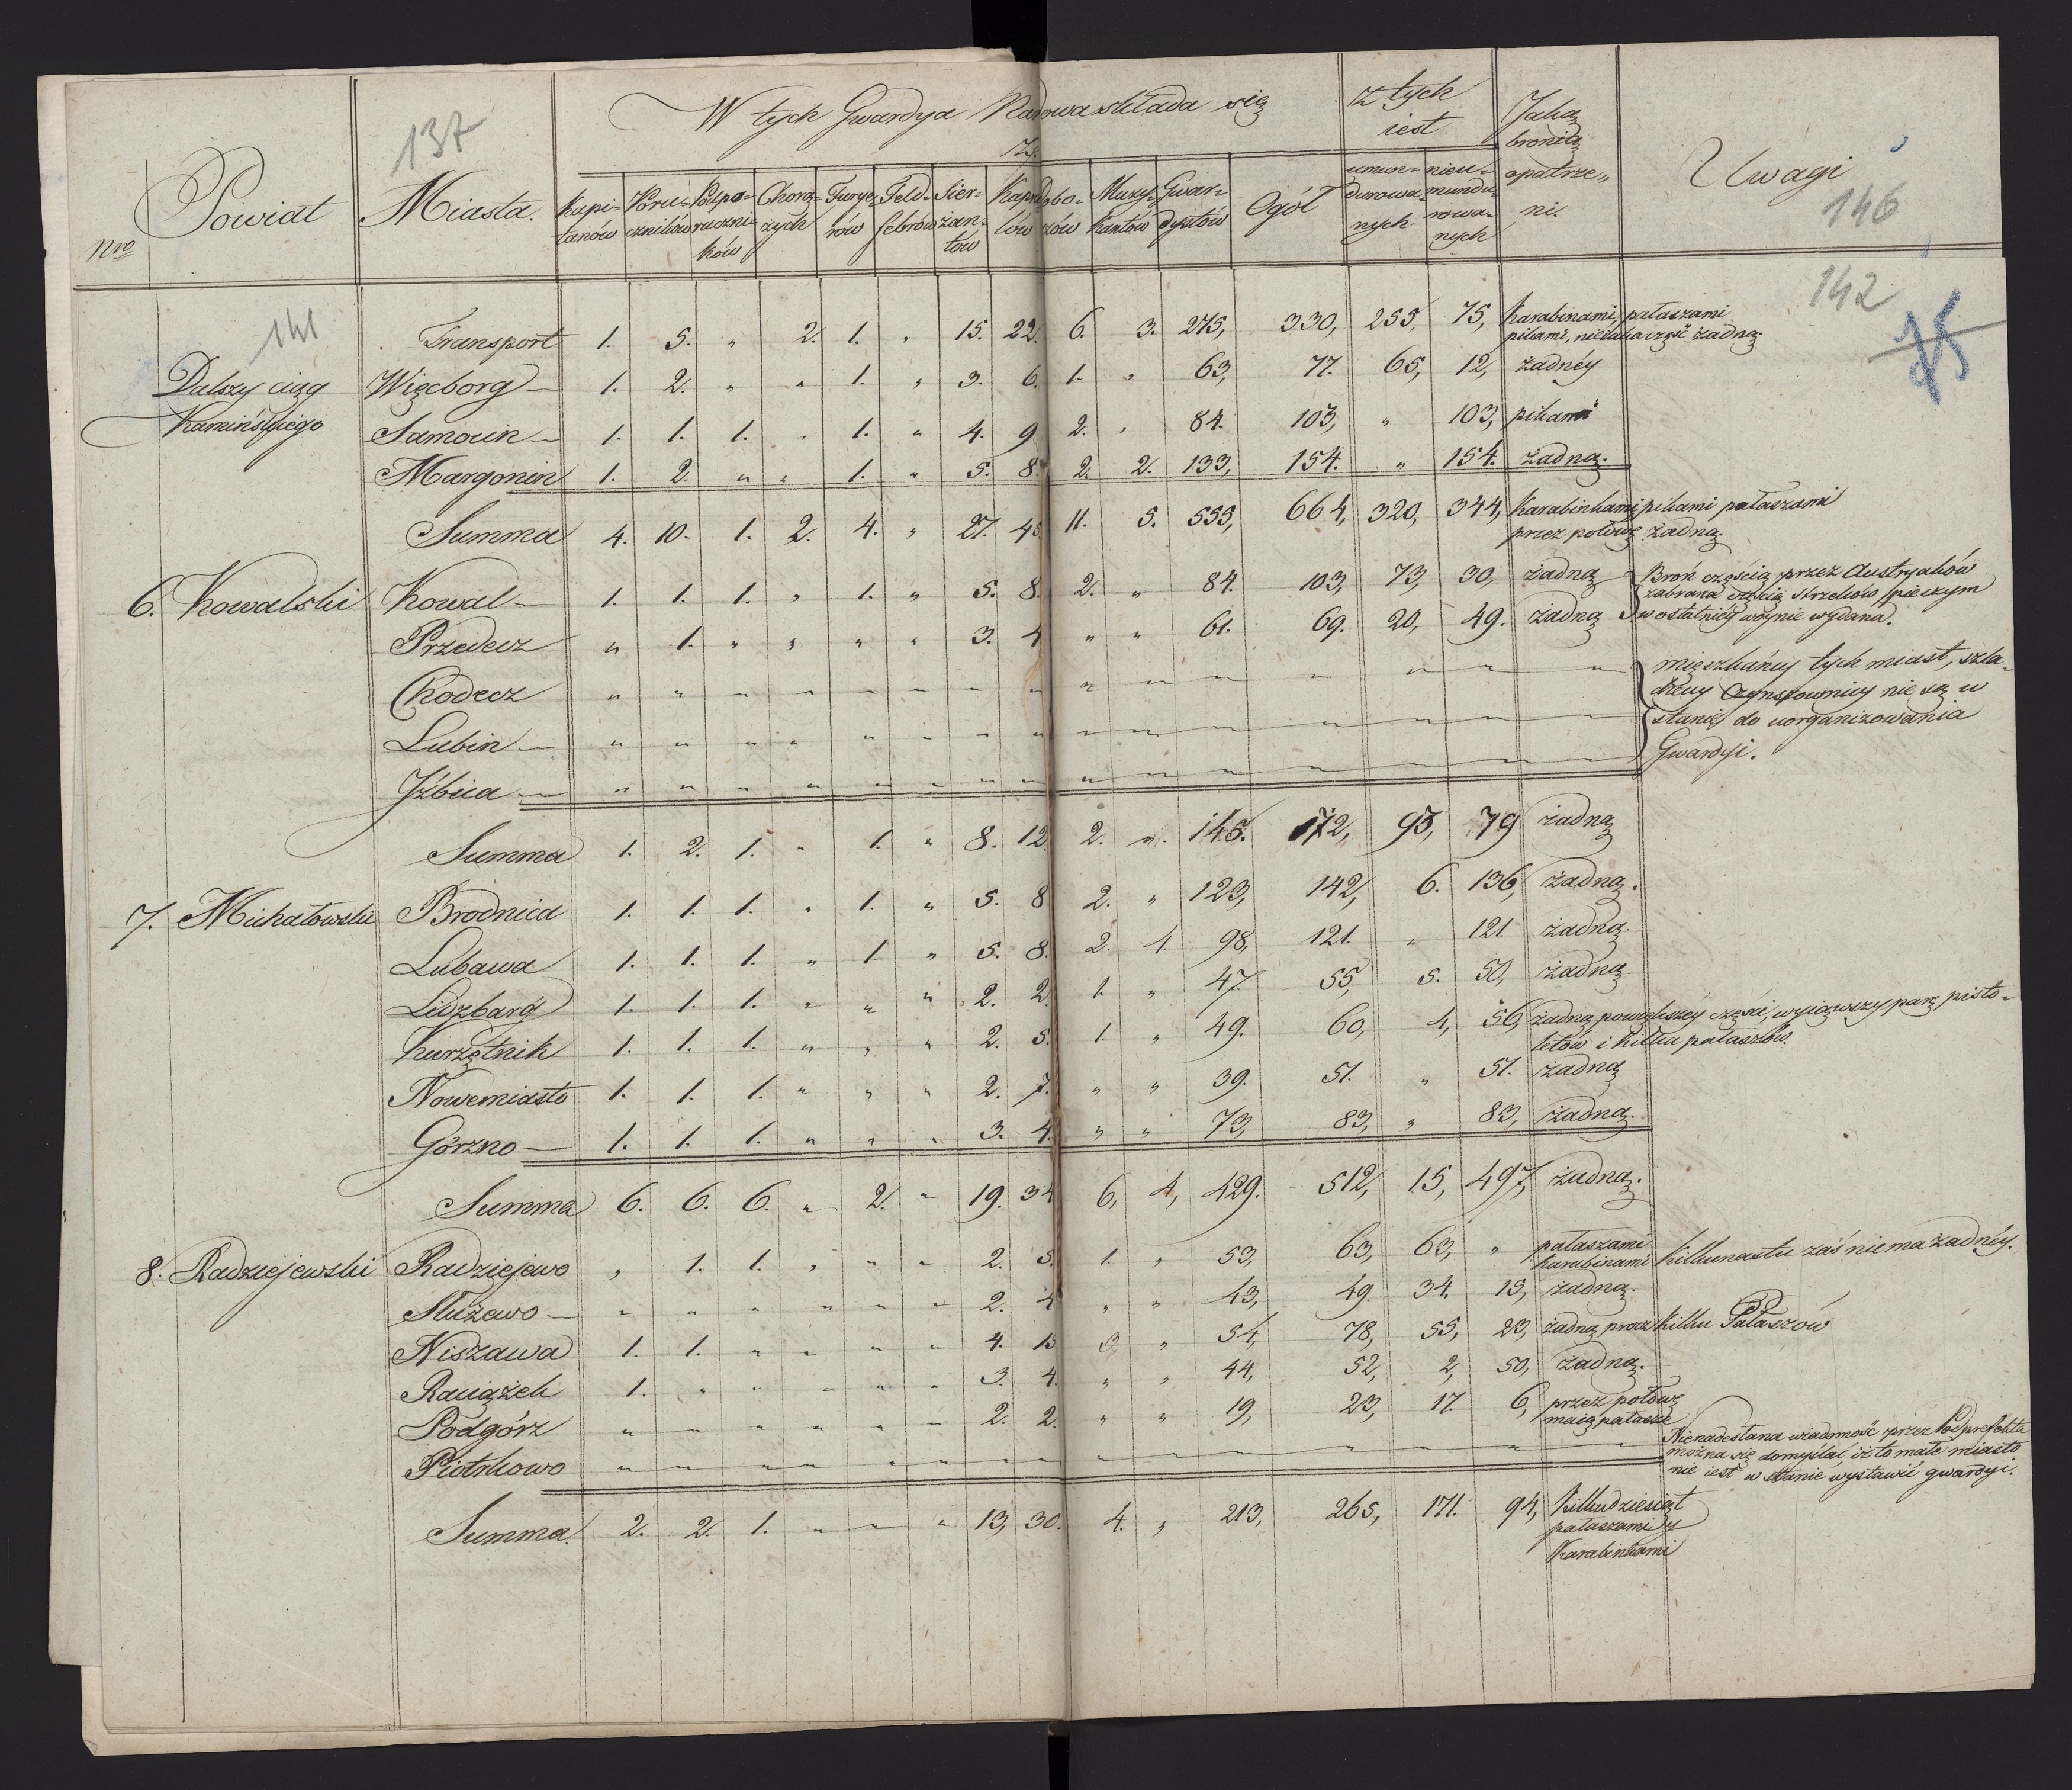 W tych Gwardya Narowa składa się
z
z tych
iest
Jaką
bronią
opatrze„
ni.
Uwagi
137
146
Nro
Powiat
Miasta.
Kapi-
tanów
Poru-
czników
Podpo-
ruczni-
ków
Chorą-
żych
Furye-
rów
Feld-
febrów
Sier-
żan-
tów
Kapra
lów
Dobo-
zów
Muzy-
kantów
Gwar-
dystów
Ogół
umun-
durowa-
nych
nieu-
mundu
rowa-
nych
141
142
75
Transport 1. 5. „ 2. 1. „ 15. 22. 6. 3. 275, 330, 255, 75, Karabinami, pałaszami
pikami, nieiaka część żadną
Dalszy ciąg Więcborg — 1. 2. „ „ 1. „ 3. 6. 1. „ 63, 77. 65, 12, żadnéy
Kamińskiego Samocin — 1. 1. 1. „ 1. „ 4. 9 2. „ 84. 103, „ 103, pikami
Margonin 1. 2. „ „ 1. „ 5. 8. 2. 2. 133, 154. „ 154. żadną.
Summa 4. 10. 1. 2. 4. „ 27. 45 11. 5. 555, 664, 320, 344, Karabinkami, pikami pałaszami
przez połowę żadną.
6. Kowalski Kowal — 1. 1. 1. „ 1. „ 5. 8. 2. „ 84. 103, 73, 30, żadną Broń częścią przez Austryaków
zabrana częścią strzelców pieszym
Przedecz „ 1. „ „ „ „ 3. 4 „ „ 61. 69. 20, 49. żadną w ostatniéy woynie wydana.
Chodecz „ „ „ „ „ „ „ „ „ „ „ „ „ „ „ mieszkańcy tych miast, szla-
checcy Czynszownicy nie są w
Lubin — „ „ „ „ „ „ „ „ „ „ „ „ „ „ „ stanie do uorganizowania
Gwardyi.
Jżbica — „ „ „ „ „ „ „ „ „ „ „ „ „ „ „
Summa 1. 2. 1. „ 1. „ 8. 12 2. „ 145. 172, 93, 79 żadną
7. Michałowski Brodnica 1. 1. 1. „ 1. „ 5. 8 2. „ 123, 142, 6. 136, żadną.
Lubawa 1. 1. 1. „ 1. „ 5. 8. 2. 4. 98, 121. „ 121. żadną.
Lidzbarg 1. 1. 1. „ „ „ 2. 2. 1. „ 47. 55, 5. 50, żadną.
Kurzętnik 1. 1. 1. „ „ „ 2. 5. 1. „ 49. 60, 4, 56, żadną powiększéy części, wyiąwszy parę pisto-
letów i kilka pałaszów.
Nowemiasto 1. 1. 1. „ „ „ 2. 7. „ „ 39. 51. „ 51. żadną
Górzno — 1. 1. 1. „ „ „ 3. 4. „ „ 73, 83, „ 83, żadną.
Summa 6. 6. 6. „ 2. „ 19. 34 6, 4, 429. 512, 15, 497, żadną.
8. Radziejewski Radziejewo „ 1. 1. „ „ „ 2. 5. 1. „ 53, 63, 63, „ pałaszami
karabinami kilkunastu zaś niema żadnéy.
Służewo — „ „ „ „ „ „ 2. 4 „ „ 43, 49. 34. 15, żadną.
Niszawa 1. 1. „ „ „ „ 4. 15 3, „ 54, 78, 55, 23, żadną procz kilku Pałaszów
Raciążek 1. „ „ „ „ „ 3. 4. „ „ 44, 52, 2, 50, żadną.
Podgórz „ „ „ „ „ „ 2. 2 „ „ 19, 23, 17. 6, przez połowę
maią pałasze
Piotrkowo „ „ „ „ „ „ „ „ „ „ „ „ „ „ „ Nienadesłana wiadomość przez Podprefekta
można się domyślać iż to małe miasto
nie iest w stanie wystawić gwardyi.
Summa. 2. 2. 1. „ „ „ 13, 30. 4. „ 213, 265, 171. 94, Kilkudziesiąt
pałaszami y
Karabinkami